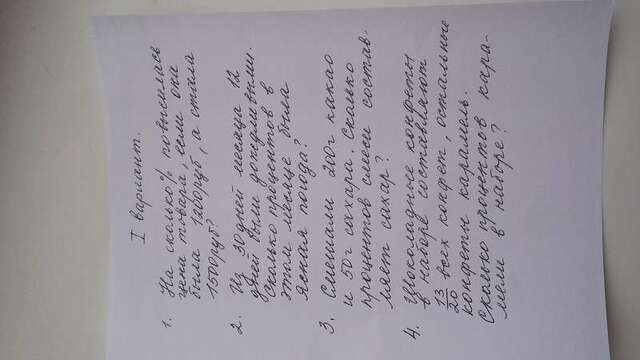 I вариант.
1. На сколько % повысилась
цена товара, если она
была 1200руб, а стала
1500руб?
2. Из 30 дней месяца 12
дней были дождливыми.
Сколько процентов в
этом месяце была
ясная погода?
3. Смешали 200г какао
и 50г сахара. Сколько
процентов смеси состав-
ляет сахар?
4. Шоколадные конфеты
в наборе составляют
13/20 всех конфет, остальные
конфеты карамель.
Сколько процентов кара-
мели в наборе?